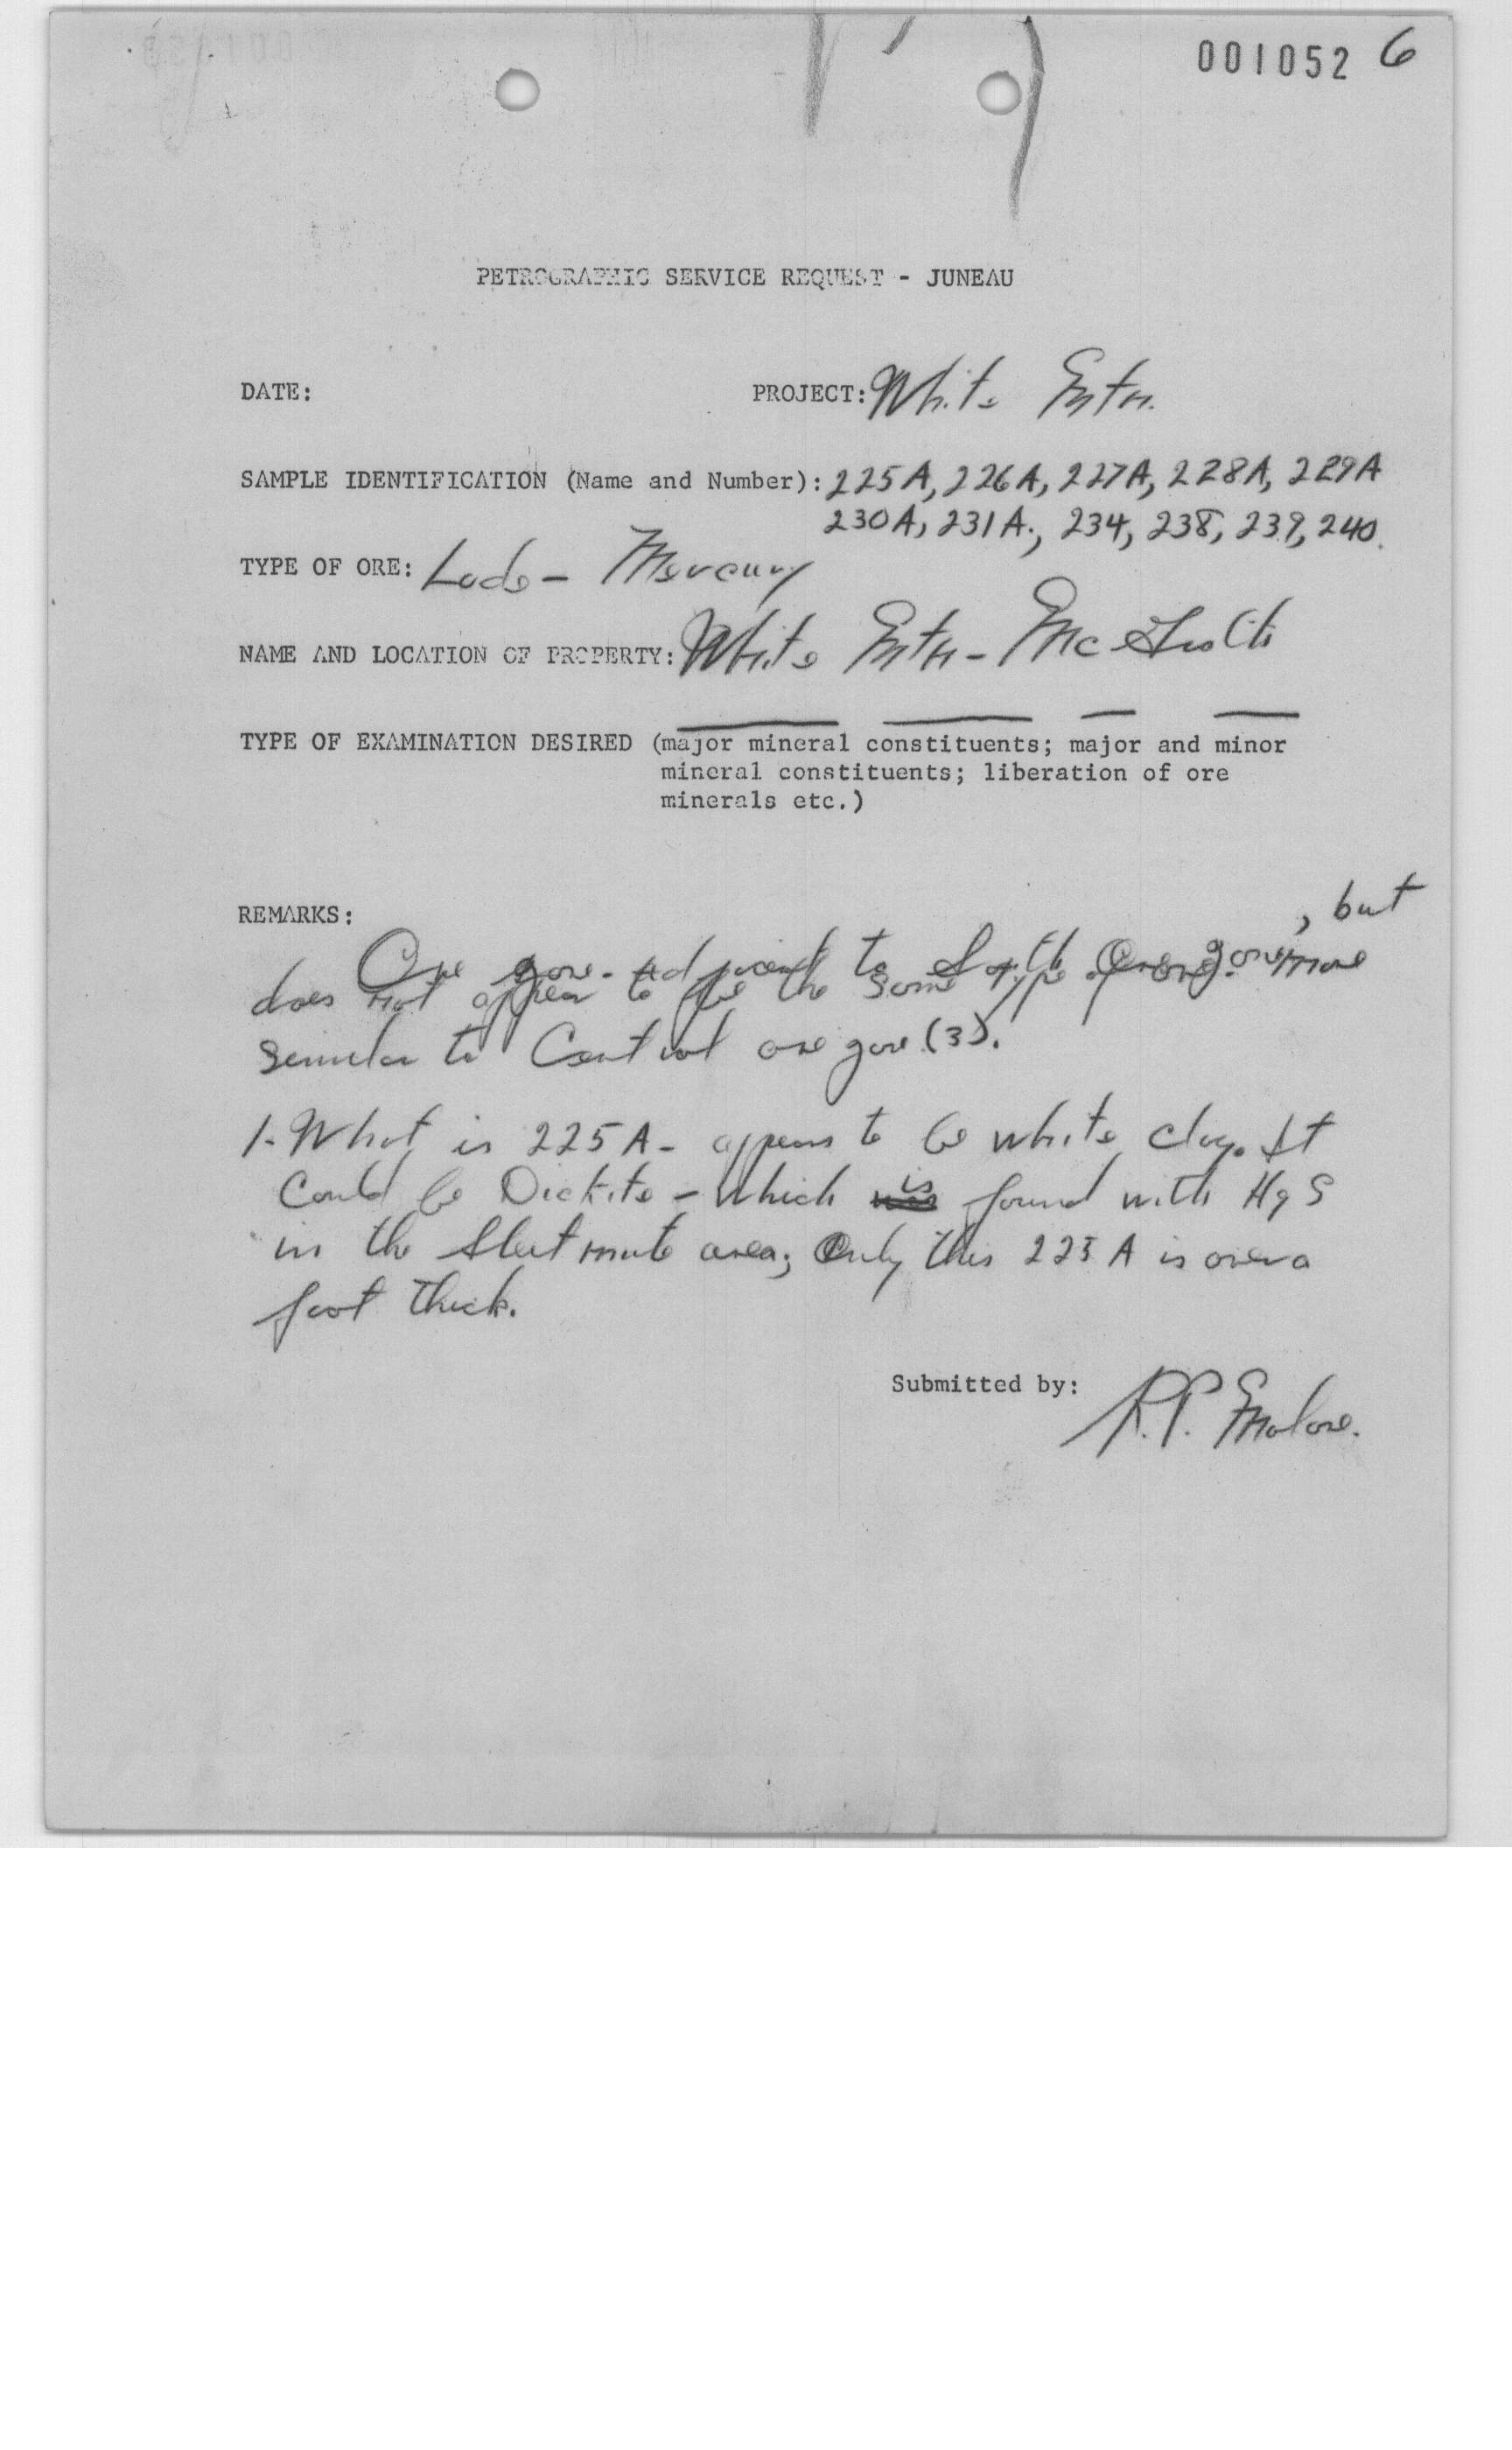 001052 6
PETROGRAPHIC SERVICE REQUEST - JUNEAU
DATE: PROJECT: White Mtn.
SAMPLE IDENTIFICATION (Name and Number): 225A, 226A, 227A, 228A, 229A
230A, 231A., 234, 238, 239, 240.
TYPE OF ORE: Lode - Mercury
NAME AND LOCATION OF PROPERTY: White Mtn - McGrath
TYPE OF EXAMINATION DESIRED (major mineral constituents; major and minor
mineral constituents; liberation of ore
minerals etc.)
REMARKS:
, but
Ore zone - adjacent to South Ore zone more
does not appear to be the same type of ore.
similar to Central ore zone (3).
1. What is 225A - appears to be white clay. It
could be Dickite - which is found with HgS
in the Sleetmute area; Only this 225A is over a
foot thick.
Submitted by: R.P. Malone.